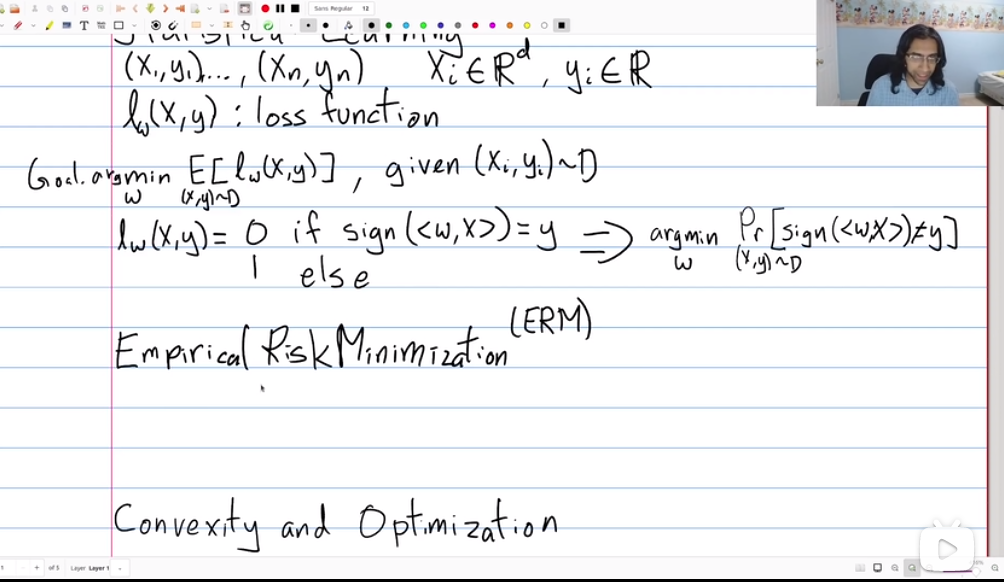 Sans Regular 12
Statistical Learning
(X₁,y₁)..., (Xn,yn) Xi∈ℝᵈ, yi∈ℝ
l_w(X,y) : loss function
Goal. argmin_w E_(X,y)~D [l_w(X,y)], given (Xi,yi)~D
l_w(X,y) = 0 if sign(<w,X>)=y ⇒ argmin_w Pr_(X,y)~D [sign(<w,X>)≠y]
1 else
Empirical Risk Minimization (ERM)
Convexity and Optimization
1 - + of 5 Layer Layer 1